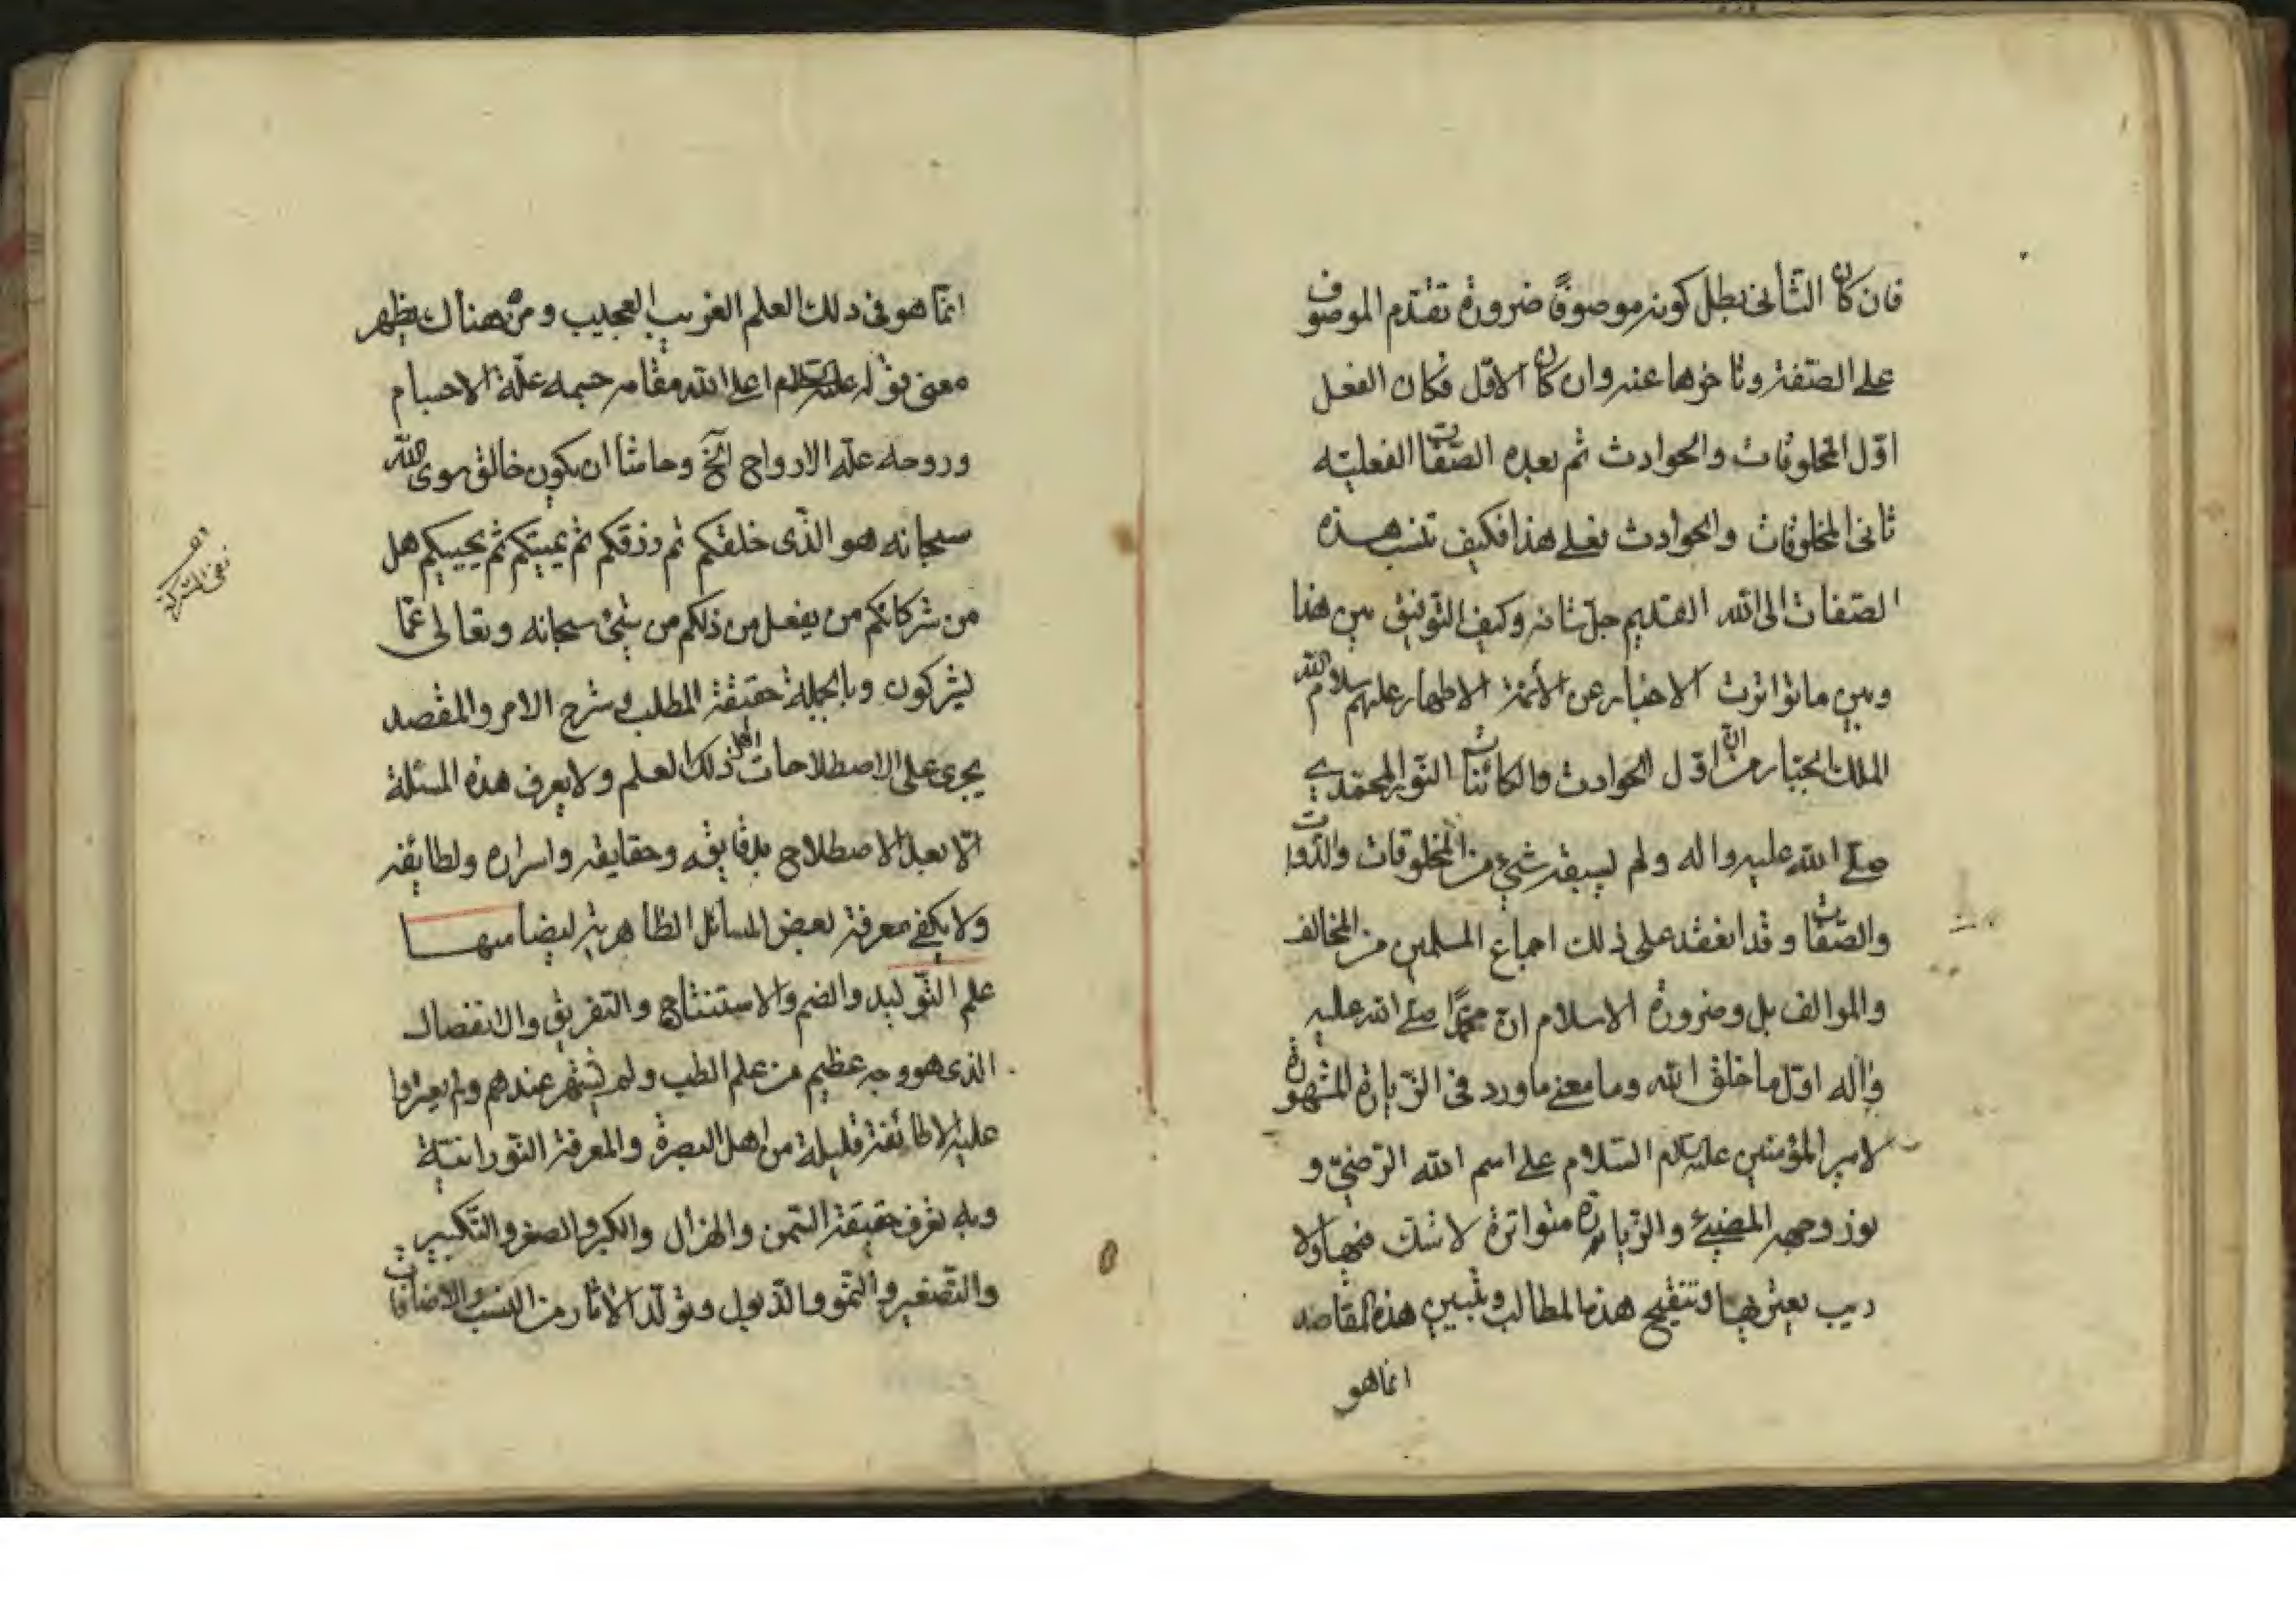 فان كان الثاني بطل كونه موصوفًا ضرورة تقدم الموصوف
على الصفة وتاخرها عنه وان كان الاوّل فكان الفعل
اوّل المخلوقات والحوادث ثم بعده الصّفات الفعليّه
ثاني المخلوقات والحوادث فعلى هذا فكيف تنسب هذه
الصّفات الى الله القديم جلّ شانه وكيف التوفيق بين هذا
وبين ما تواترت الاخبار عن الأئمة الاطهار عليهم سلام الله
الملك الجبّار من انّ اوّل الحوادث والكائنات النّور المحمّدي
صلى الله عليه واله ولم يسبقه شيء من المخلوقات والذّوات
والصّفات وقد انعقد على ذلك اجماع المسلمين من المخالف
والموالف بل وضرورة الاسلام انّ محمّدًا صلى الله عليه
وآله اوّل ما خلق الله وما معنى ما ورد في الزّيارة المشهورة
لامير المؤمنين عليه السلام السّلام على اسم الله الرّضيّ و
نور وجهه المضيئ والزّيارة متواترة لا شك فيها ولا
ريب يعتريها وتنقيح هذه المطالب وتبيين هذه المقاصد
انما هو
انّما هو في ذلك العلم الغريب العجيب ومن هناك يظهر
معنى قوله عليه السلم اعلى الله مقامه جسمه علّة الاجسام
وروحه علّة الارواح الخ وحاشا ان يكون خالق سوى الله
سبحانه هو الّذي خلقكم ثم رزقكم ثم يميتكم ثم يحييكم هل
من شركائكم من يفعل من ذلكم من شيئ سبحانه وتعالى عمّا
يشركون وبالجملة حقيقة المطلب وشرح الامر والمقصد
يجري على الاصطلاحات اهل ذلك العلم ولا يعرف هذه المسئلة
الّا بعد الاصطلاح بدقايقه وحقايقه واسراره ولطائفه
ولا يكفي معرفة بعض المسائل الظاهرية ليضاميها
علم التّوليد والضم والاستنتاج والتفريق والانفصال
الذي هو وجه عظيم من علم الطب ولم يشتهر عندهم ولم يعثروا
عليه الا طائفة قليلة من اهل البصرة والمعرفة النّورانيّة
وبه يعرف حقيقة السّمن والهزال والكبر والصغر والتّكبير
والتّصغير والنّمو والذّبول وتولّد الاثار من النسب والاضافات
نفى الشركة